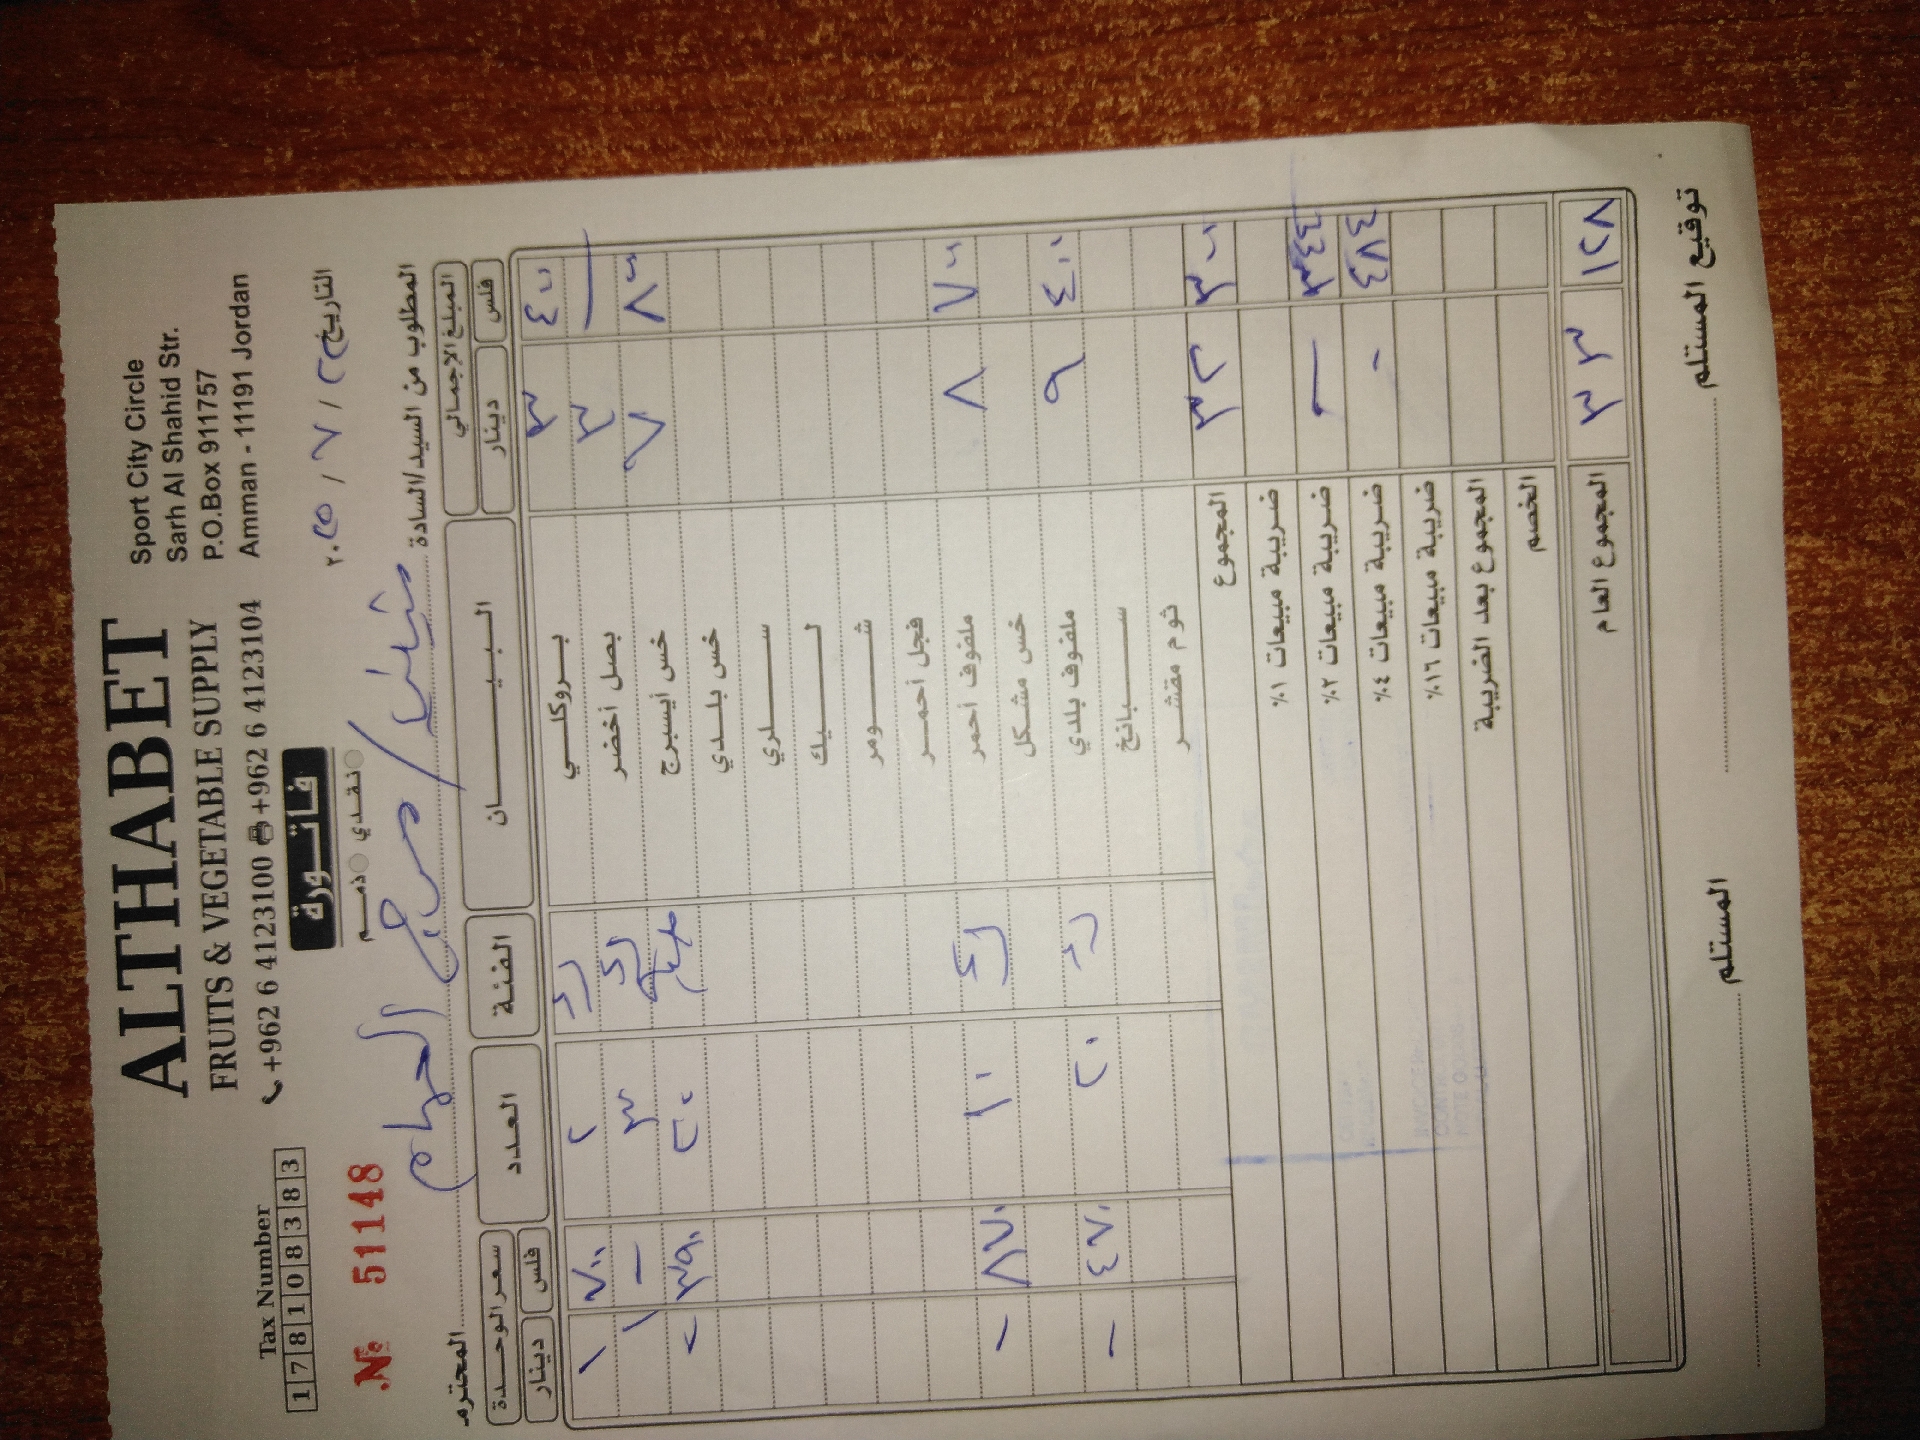 ALTHABET
FRUITS & VEGETABLE SUPPLY
+962 6 4123100 +962 6 4123104
Sport City Circle
Sarh Al Shahid Str.
P.O.Box 911757
Amman - 11191 Jordan
Tax Number
1 7 8 1 0 8 3 8 3
فاتورة
نقدي ذمم
№ 51148
التاريخ ٢٢ / ٧ / ٢٠٢٥
المطلوب من السيد/السادة / مرج الحمام المحترم
المبلغ الإجمالي البيان الفئة العدد سعر الوحدة
فلس دينار دينار فلس
٤٠٠ ٣ بروكلي ٢ ٧٠٠ ١
— ٣ بصل أخضر ٣ — ١
٨٠٠ ٧ خس أيسبرج ٢٠ ٣٩٠ -
خس بلدي
سلري
ليك
شومر
فجل أحمر
٧٠٠ ٨ ملفوف أحمر ١٠ ٨٧٠ -
خس مشكل
٤٠٠ ٩ ملفوف بلدي ٢٠ ٤٧٠ -
سبانخ
ثوم مقشر
٣٠٠ ٣٢ المجموع
ضريبة مبيعات ١٪
٣٤٤ — ضريبة مبيعات ٢٪
٤٧٤ - ضريبة مبيعات ٤٪
ضريبة مبيعات ١٦٪
المجموع بعد الضريبة
الخصم
١٢٨ ٣٣ المجموع العام
توقيع المستلم المستلم